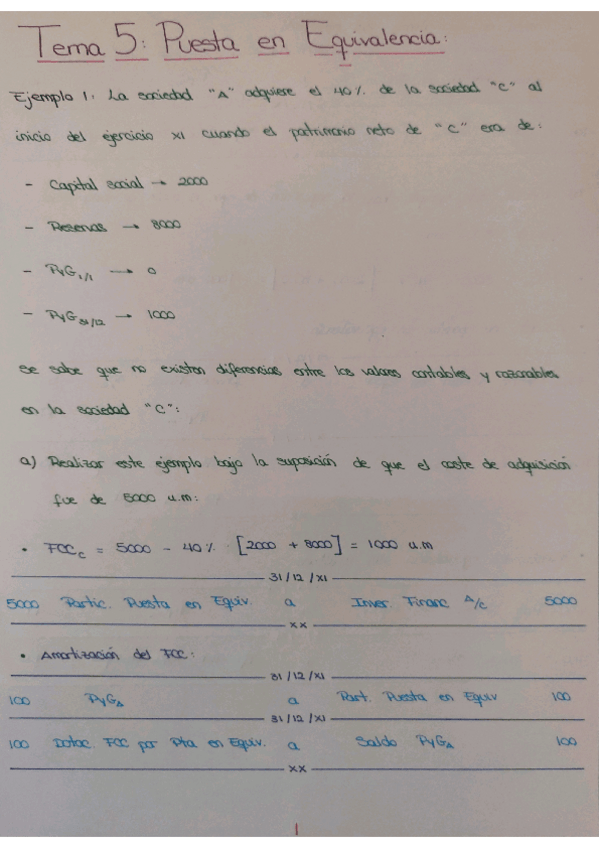 Tema 5: Puesta en Equivalencia:
Ejemplo 1. La sociedad "A" adquiere el 40% de la sociedad "C" al
inicio del ejercicio X1 cuando el patrimonio neto de "C" era de:
- Capital social → 2000
- Reservas → 8000
- PyG1/1 → 0
- PyG31/12 → 1000
Se sabe que no existen diferencias entre los valores contables y razonables
en la sociedad "C":
a) Realizar este ejemplo bajo la suposición de que el coste de adquisición
fue de 5000 u.m:
• FCCc = 5000 - 40% · [2000 + 8000] = 1000 u.m
31/12/X1
5000 Partic. Puesta en Equiv. a Inver. Financ A/C 5000
XX
• Amortización del FCC:
31/12/X1
100 PyGA a Part. Puesta en Equiv 100
31/12/X1
100 Dotac. FCC por Pta en Equiv. a Saldo PyGA 100
XX
1